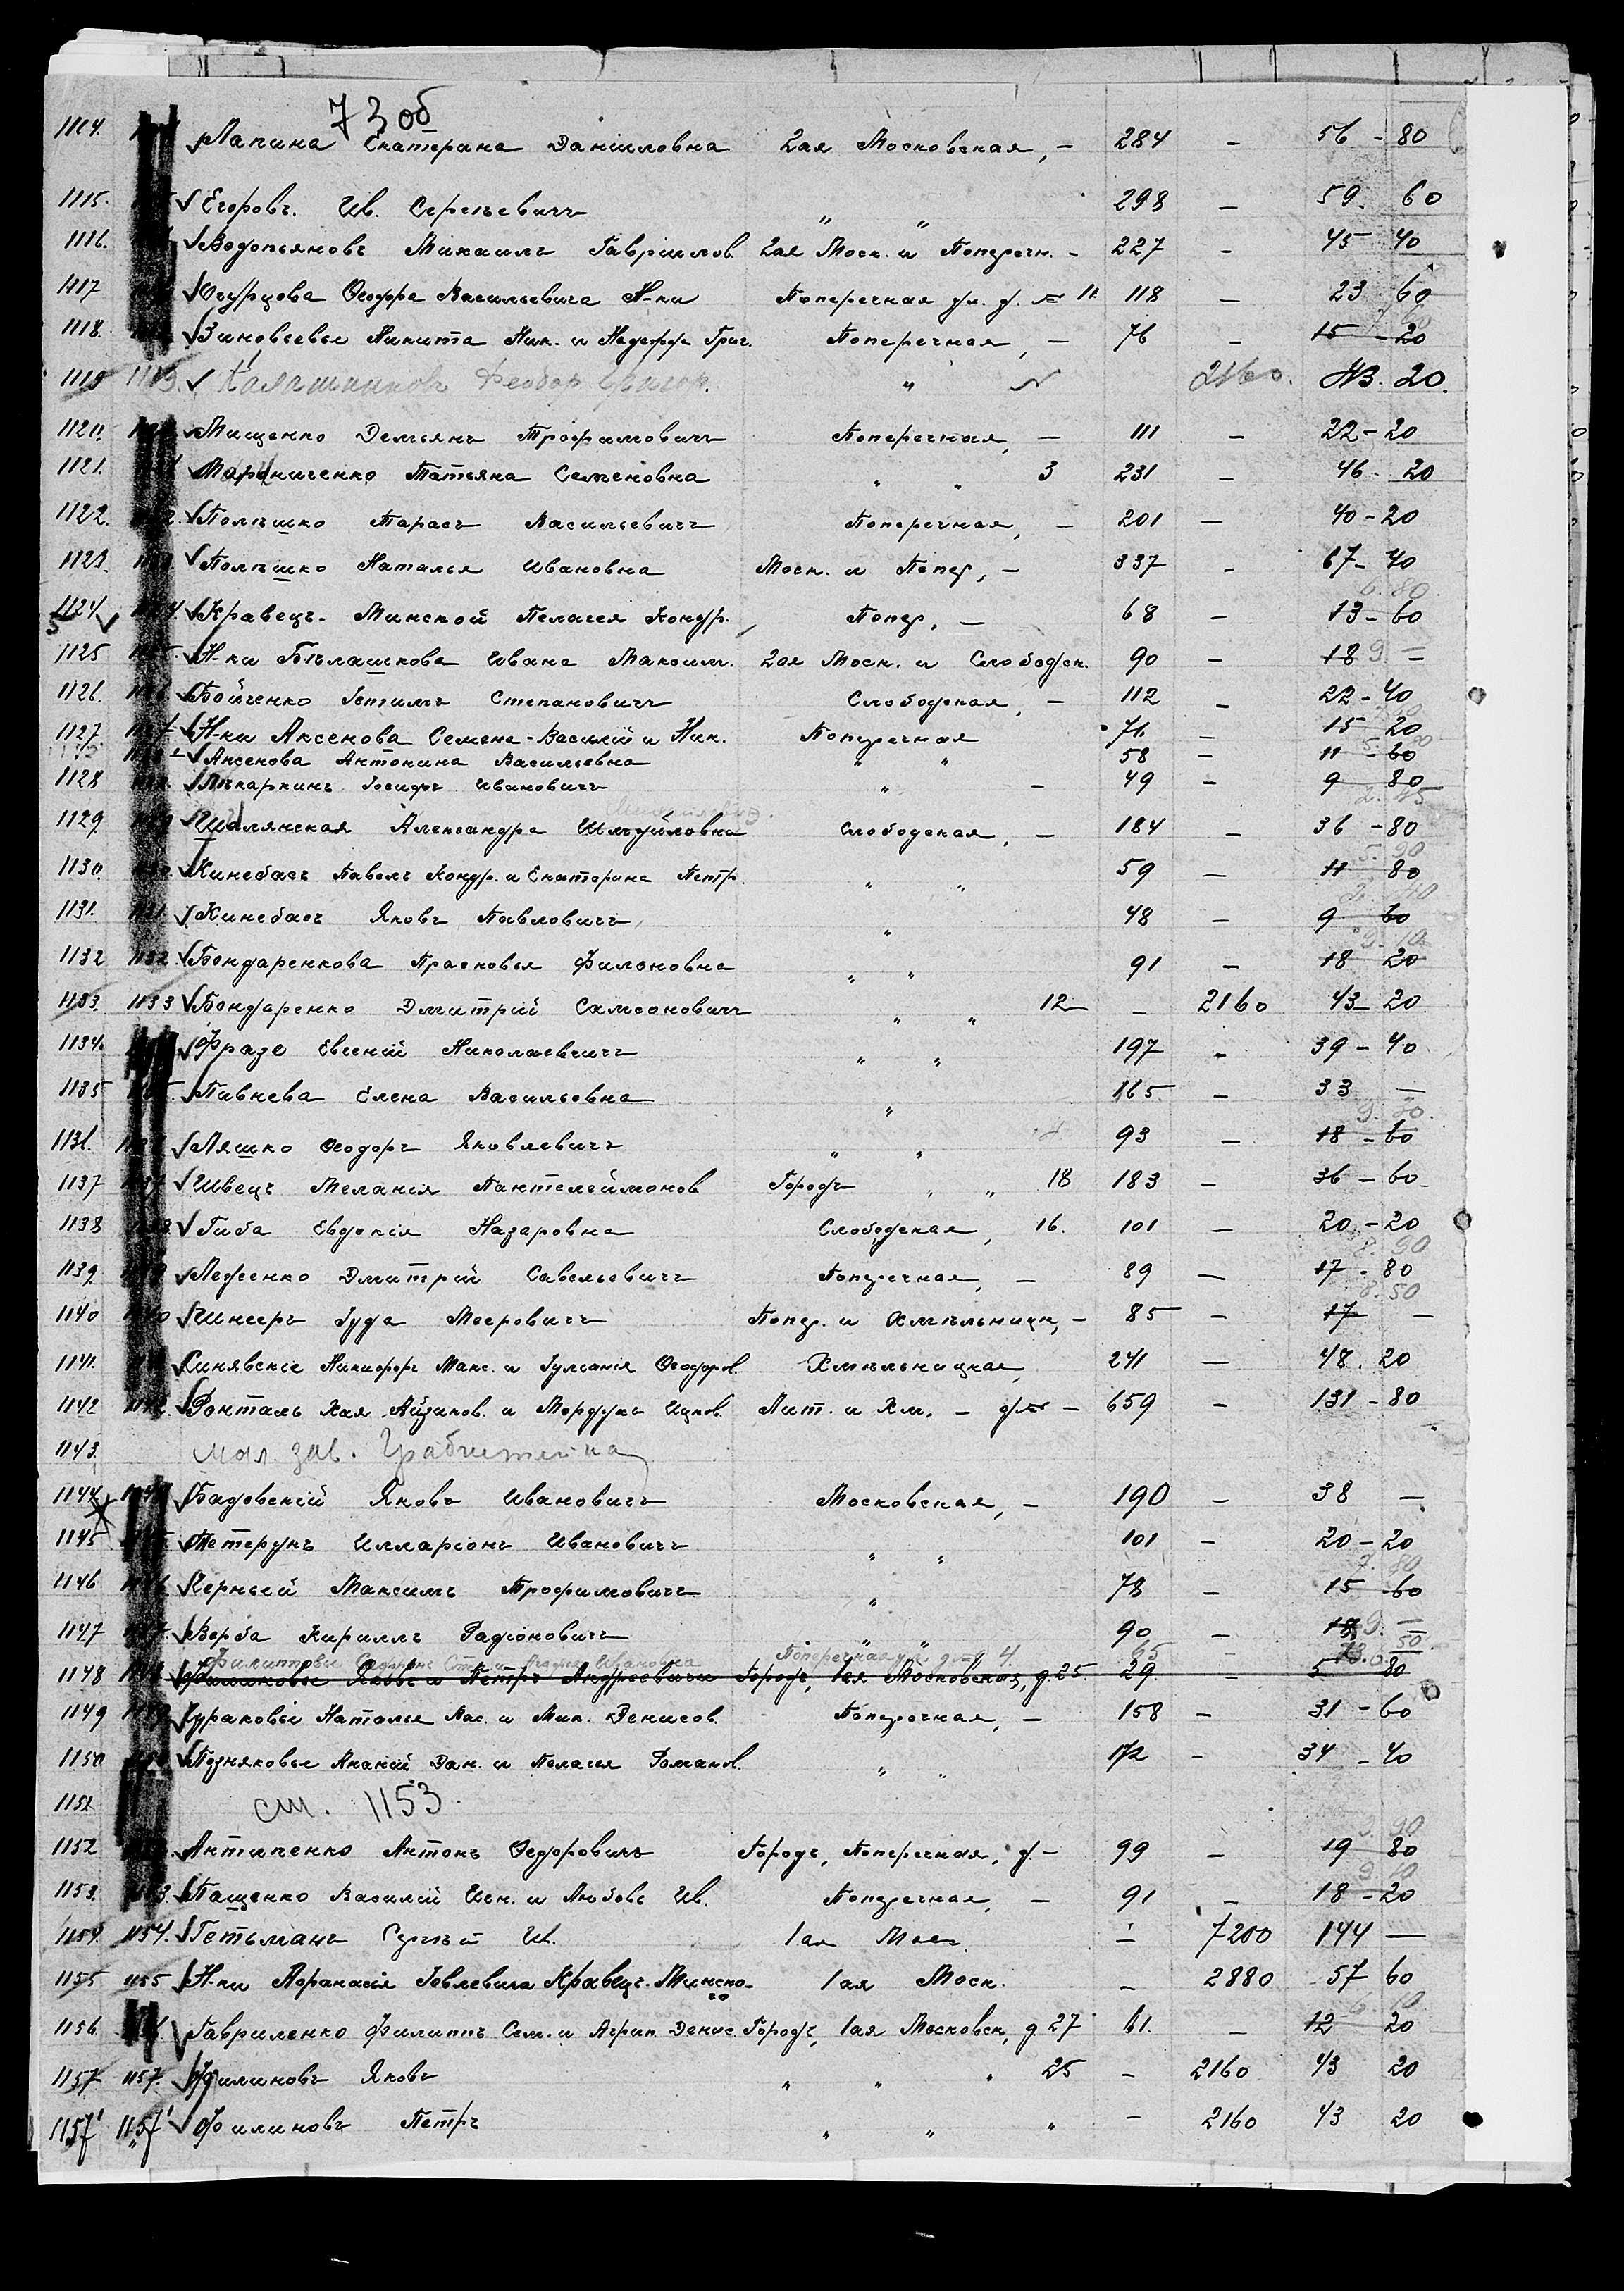 73 об
1114. Лапина Екатерина Данииловна 2ая Московская, - 284 - 56 - 80
1115. Егоровъ. Ив. Сергѣевичъ " " 298 - 59. 60
1116. Водопьяновъ Михаилъ Гавриилов. 2ая Моск. и Поперечн. - 227 - 45 40
1117 Огурцова Ѳеодора Васильевича Н-ки Поперечная ул. д. № 11. 118 - 23 60
1118. Зиновьевы Никита Ник. и Григ. Поперечная, - 76 - 15 - 20
1119 1119. Феодор. Григор. " 2160. 43. 20.
1120. Мищенко Демьянъ Трофимовичъ Поперечная, - 111 - 22 - 20
1121. Татьяна Семеновна " " 3 231 - 46 - 20
1122. Полѣшко Тарасъ Васильевичъ Поперечная, - 201 - 40 - 20
1123. Полѣшко Наталья Ивановна Моск. и Попер, - 337 - 67 - 40
6.80
1124. Кравецъ-Минской Пелагея Кондр. Попер, - 68 - 13 - 60
1125 Н-ки Бѣлашкова Ивана Максим. 2ая Моск. и Слободск. 90 - 18 9. -
1126. Бойченко Степановичъ Слободская, - 112 - 22 - 40
1127 Н-ки Аксенова Семена-Василий и Ник. Поперечная 76 - 15 20
Аксенова Антонина Васильевна " " 58 - 11 - 60
1128 Пѣкаркинъ Іосифъ Ивановичъ " - 49 - 9 80
1129 Александра Слободская, - 184 - 36 - 80
5.90
1130. Кинебасъ Павелъ Кондр. и Екатерина Петр. " " 59 - 11 80
1131. Кинебасъ Яковъ Павловичъ " 48 - 9 60
9.10
1132 1132. Бондаренкова Прасковья Филоновна " " 91 - 18 20
1133. 1133 Бондаренко Дмитрій Самсоновичъ " " 12 - 2160 43 - 20
1134. Фразе Евгеній Николаевичъ " " 197 - 39 - 40
1135 Пивнева Елена Васильевна " 165 - 33 -
9.30.
1136. Ляшко Ѳеодоръ Яковлевичъ " " 93 - 18 - 60
1137 Швецъ Меланія Пантелеймонов Городъ " " 18 183 - 36 - 60
1138 Гиба Евдокія Назаровна Слободская, 16. 101 - 20 - 20
8.90
1139. Леженко Дмитрій Савельевичъ Поперечная, - 89 - 17 - 80
8.50
1140 Гуда Мееровичъ Попер. и Хмѣльницк, - 85 - 17 -
1141. Синявскіе Никифоръ Макс. и Ѳеодоров. Хмѣльницкая, 241 - 48. 20
1142 Ронталь Хая Айзиков. и Мордухъ Ицков. Лит. и Хм. - 659 - 131 - 80
1143. мол. зав.
1144 Бадовскій Яковъ Ивановичъ Московская, - 190 - 38 -
1145 Петерунъ Илларіонъ Ивановичъ " " 101 - 20 - 20
7.80
1146 Черный Максимъ Трофимовичъ " 78 - 15 - 60
1147 Верба Кириллъ Радіоновичъ " " 90 - 18 9. -
Филипповы Ивановна Поперечная ул. д. № 4. 65 - 6.50.
1148 Филиновы Яковъ и Петръ Андреевичи Городъ, 1ая Московская, д. 25. 29. - 5 80
1149 Гураковы Наталья Вас. и Мих. Денисов. Поперечная, - 158 - 31 - 60
1150 Позняковы Ананій Дан. и Пелагея Роман. " " 172 - 34 - 40
1151 см. 1153.
9.90
1152 Антипенко Антонъ Ѳедоровичъ Городъ, Поперечная, д. - 99 - 19 80
9.10
1153. Пащенко Василій и Любовь Ив. Поперечная, - 91 - 18 - 20
1154. 1154. Гетьманъ Сергѣй И. 1ая Моск. - 7200 144 -
1155 1155 Н-ки Аѳанасія Іовлевича Кравецъ-Минско- 1ая Моск. - 2880 57 60
го
6.10
1156 Гавриленко Филиппъ Сем. и Агрип. Денис. Городъ, 1ая Московск, д 27 61. - 12 20
1157 1157. Филиновъ Яковъ " " " 25 - 2160 43 20
1157' 1157' Филиновъ Петръ " " " - 2160 43 20